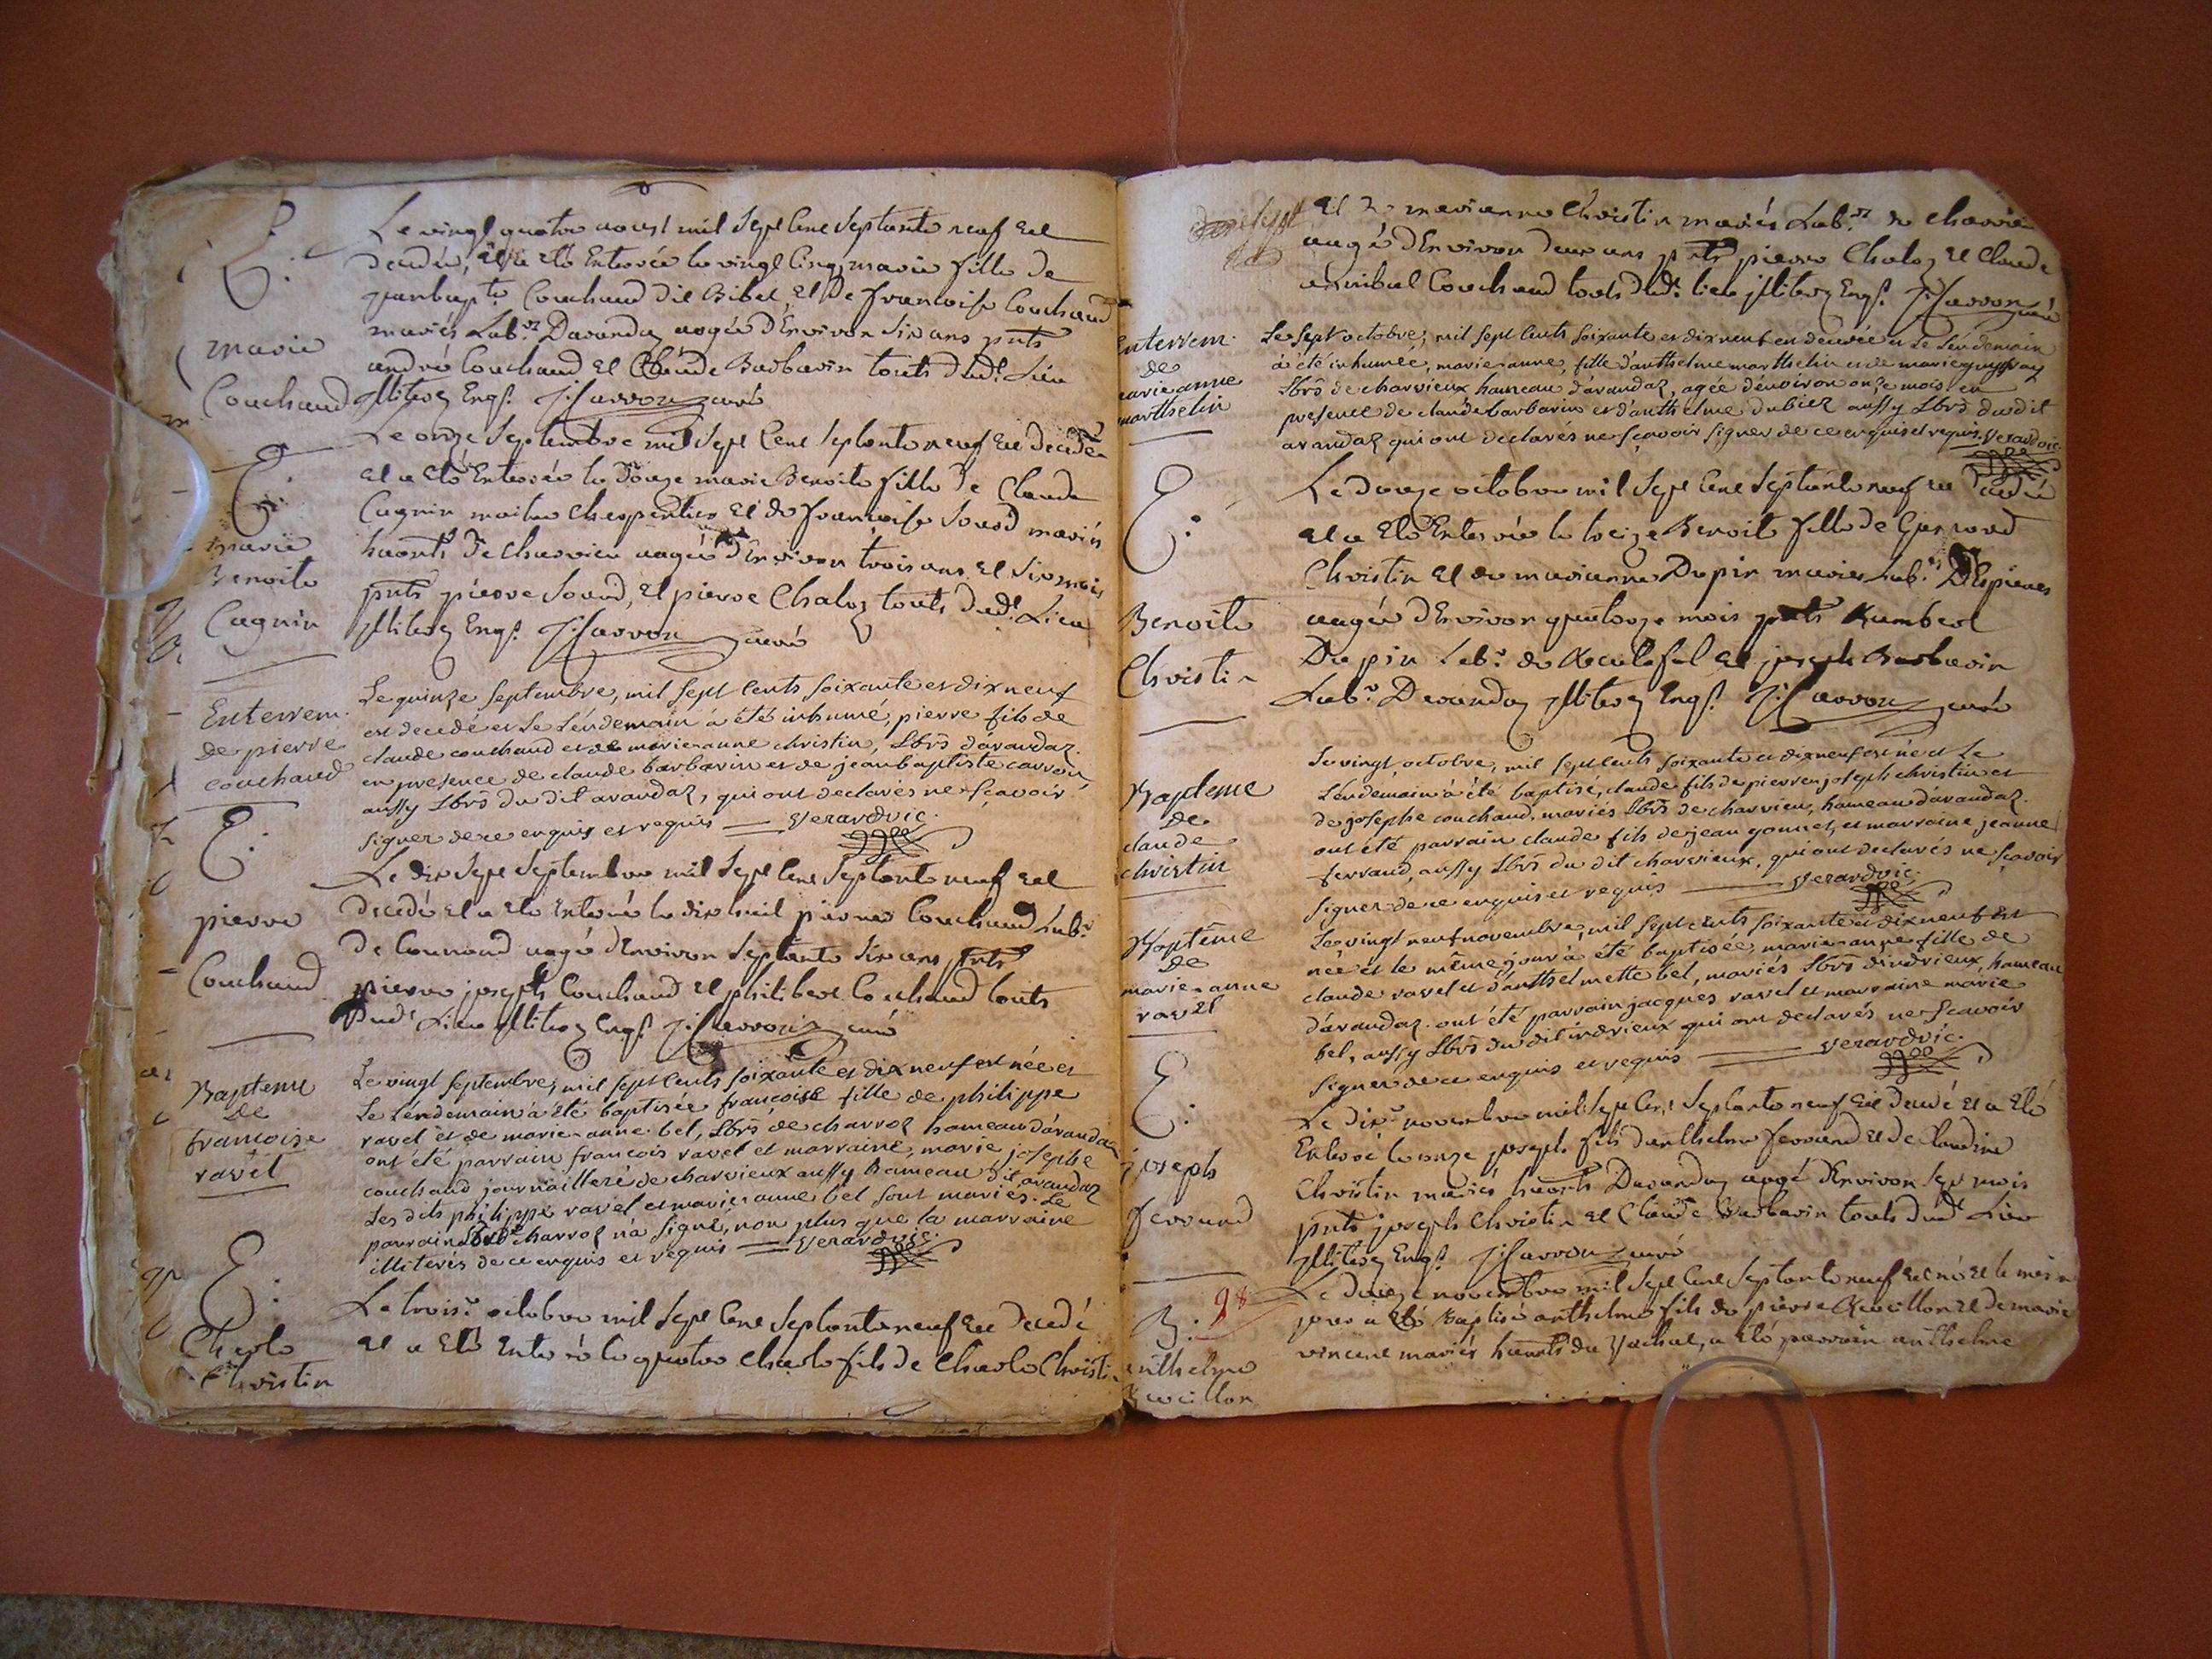 E.
marie
Couchaud
Le vingt quatre aoust mil Sept Cent Septante neuf Est
decedée, Et a Eté Enterrée le vingt Cinq marie fille de
jeanbapte Couchaud dit Bibet, Et De francoise Couchaud
mariés Labrs Davandaz aagée d'Environ Six ans pnts
andré Couchaud Et Claude Barbarin touts dudt Lieu
illiterez Enqs. J: Carron curé
E.
marie
Benoite
Cagnin
Le onze Septembre mil Sept Cent Septante neuf Est decedée
Et a Eté Enterrée le Douze marie Benoite fille de Claude
Cagnin maitre Charpentier Et de francoise Sourd mariés
hants De Charvieu aagée d'Environ trois ans Et Six mois
pnts pierre Sourd, Et pierre Chaloz touts dudt Lieu
illiterez Enqs. J: Carron curé
Enterrem.
de pierre
couchaud
Le quinze septembre, mil sept cents soixante et dix neuf
est decedé et le léndemain à été inhumé, pierre fils de
claude couchaud et de marie-anne christin, Lbrs d'àvandaz.
en presence de claude barbarin et de jean baptiste carron
aussy Lbrs du dit avandaz, qui ont declarés ne sçavoir
signer de ce enquis et requis — Verard vic.
E.
pierre
Couchaud
Le dix Sept Septembre mil Sept Cent Septante neuf Est
decedé Et a Eté Enterré le dix huit pierre Couchaud Labr
De Connaud aagé d'Environ Septante Six ans pnts
pierre joseph Couchaud Et philibert Couchaud touts
Dudt Lieu illiterez Enqs. J: Carron curé
Bapteme
de
francoise
ravêt
Le vingt septembre, mil sept cents soixante et dix neuf est née et
Le Léndemain à été baptisée francoise fille de philippe
ravel et de marie-anne bel, Lbrs de charvoz hameau d'àvandaz
ont été parrain francois ravel et marraine, marie josephe
couchaud journaillere de charvieux aussy hameau dit avandaz
Les dits philippe ravel et marie-anne bel sont mariés. Le
parrain Lbr de charvoz n'à signé, non plus que la marraine
illiterés de ce enquis et requis — Verard vic.
E.
Charle
Christin
Le trois.e octobre mil Sept Cent Septante neuf Est decedé
Et a Eté Enterré le quatre Charle fils de Charle Christin
Et De marianne Christin mariés Labrs de Charvieu
aagé d'Environ deux ans pnts pierre Chaloz Et Claude
annibal Couchaud touts dudt lieu illiterez Enqs. J: Carron curé
Enterrem.
de
marie-anne
marthelin
Le sept octobre, mil sept cents soixante et dix neuf est decedée et Le léndemain
à été inhumée, marie-anne, fille d'anthelme marthelin et de marie
Lbrs de charvieux hameau d'avandaz, agée d'énviron onze mois en
presence de claude barbarin et d'anthelme dubiez aussy Lbrs du dit
avandaz qui ont declarés ne sçavoir signer de ce enquis et requis. Verard vic.
E.
Benoite
Christin
Le Douze octobre mil Sept Cent Septante neuf Est decedée
Et a Eté Enterrée le treize Benoite fille de
Christin Et de marianne Dupin mariés Labrs D'Espieres
aagée d'Environ quatorze mois pnts Humbert
Du pin Labr de Et joseph Barbarin
Labr Davandaz illiterez Enqs. J: Carron curé
Bapteme
de
claude
christin
Le vingt octobre, mil sept cents soixante et dix neuf est né et Le
Léndemain à été baptisé, claude fils de pierre-joseph christin et
de josephe couchaud, mariés Lbrs de charvieu, hameau d'avandaz.
ont été parrain claude fils de jean gonnet, et marraine jeanne
ferraud, aussy Lbrs du dit charvieux, qui ont declarés ne sçavoir
signer de ce enquis et requis — Verard vic.
Baptême
de
marie-anne
ravel
Le vingt neuf novembre, mil sept cents soixante et dix neuf est
née et le même jour à été baptisée, marie-anne fille de
claude ravel et d'anthelmette bel, mariés Lbrs d'indrieux, hameau
d'avandaz. ont été parrain jacques ravel et marraine marie
bel, aussy Lbrs du dit indrieux qui ont declarés ne sçavoir
signer de ce enquis et requis — Verard vic.
E.
joseph
ferrand
Le dix.e novembre mil Sept Cent Septante neuf Est decedé Et a Eté
Enterré le onze joseph fils danthelme ferrand Et de Claudine
Christin mariés hants Davandaz aagé d'Environ Sept mois
pnts joseph Christin Et Claude Barbarin touts dudt Lieu
illiterez Enqs. J: Carron curé
98
B.
anthelme
Le Douze novembre mil Sept Cent Septante neuf Est né Et le même
jour a Eté Baptisé anthelme fils de pierre Et de marie
vincent mariés hants du Vachat, a Eté parrain anthelme